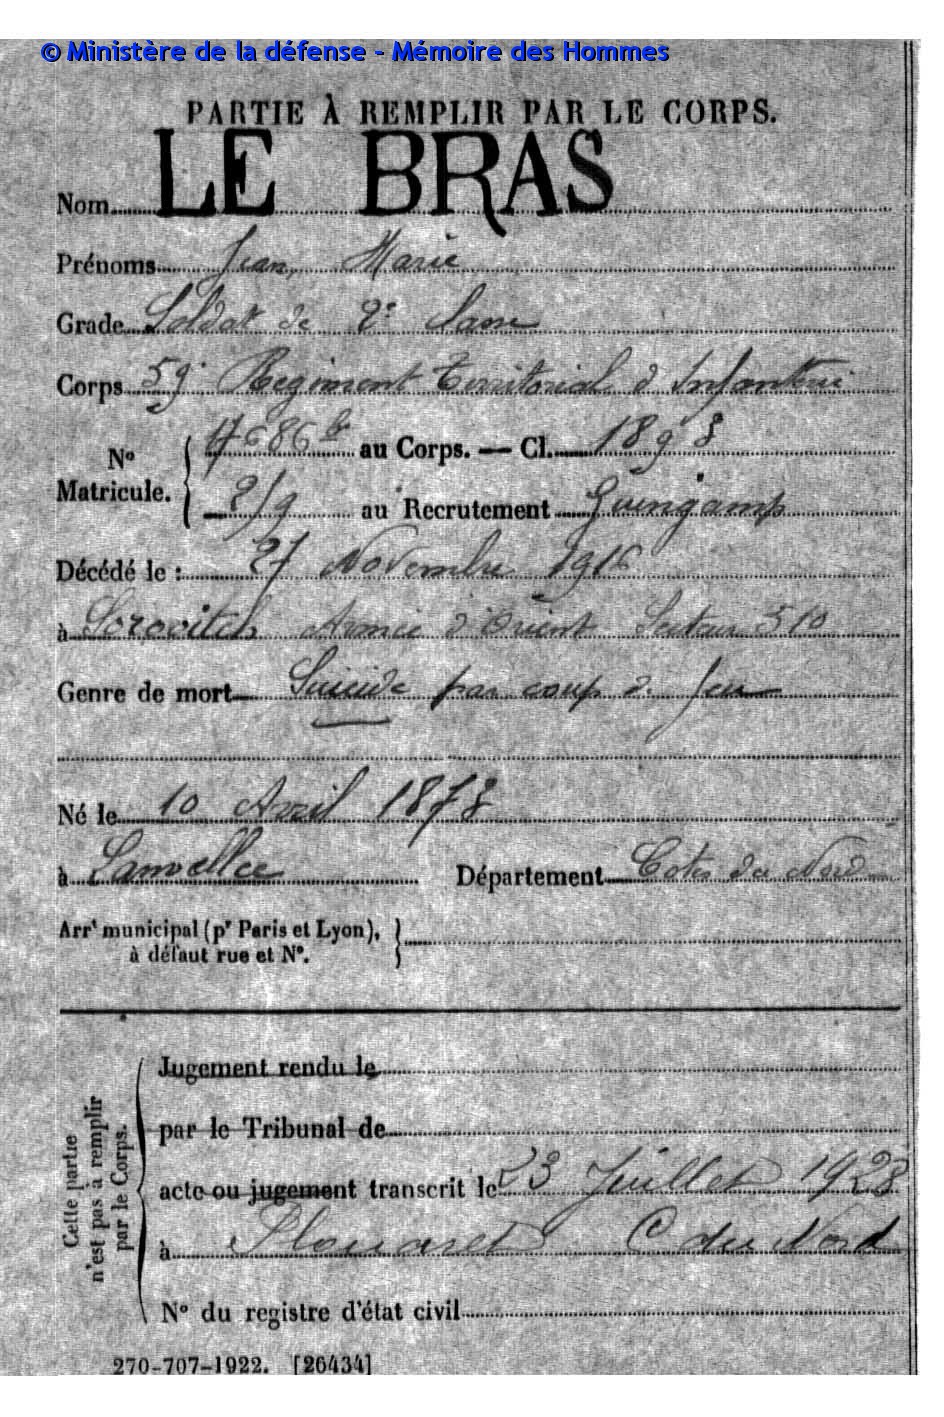 © Ministère de la défense - Mémoire des Hommes
PARTIE À REMPLIR PAR LE CORPS.
Nom LE BRAS
Prénoms Jean, Marie
Grade Soldat de 2e classe
Corps 59e Régiment Territorial d'Infanterie
No Matricule. { 17686 bis au Corps. — Cl. 1898
2/9 au Recrutement Guingamp
Décédé le : 27 Novembre 1916
à Sorovitch Armée d'Orient Secteur 510
Genre de mort Suicide par coup de feu
Né le 10 Avril 1878
à Lanvellec Département Cotes du Nord
Arrt municipal (pr Paris et Lyon),
à défaut rue et No.
Cette partie
n'est pas à remplir
par le Corps.
Jugement rendu le
par le Tribunal de
acte ou jugement transcrit le 23 Juillet 1928
à Plouaret C du Nord
No du registre d'état civil
270-707-1922. [26434]